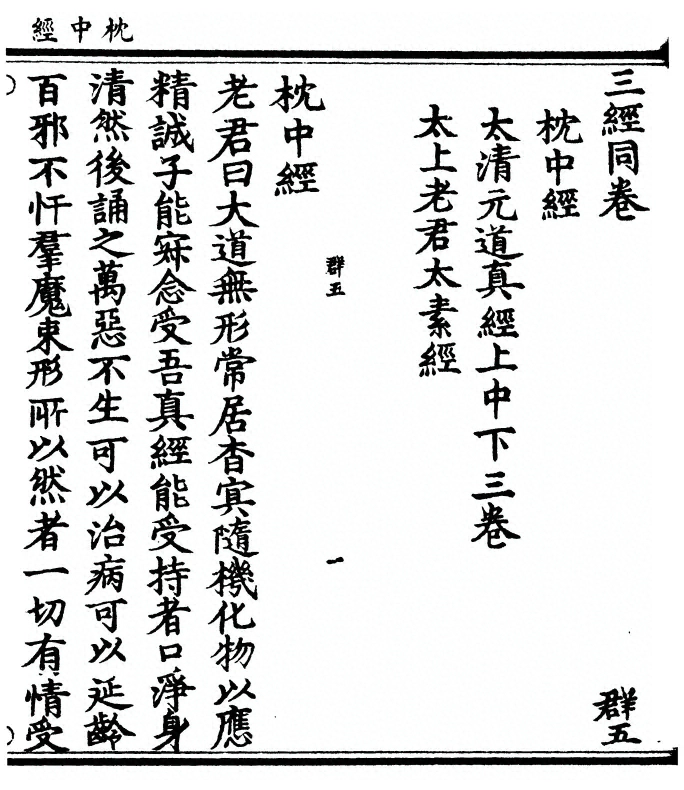 枕中經
三經同卷
群五
枕中經
太清元道真經上中下三卷
太上老君太素經
群五
一
枕中經
老君曰大道無形常居杳㝠隨機化物以應
精誠子能寂念受吾真經能受持者口淨身
清然後誦之萬惡不生可以治病可以延齡
百邪不忓羣魔束形所以然者一切有情受